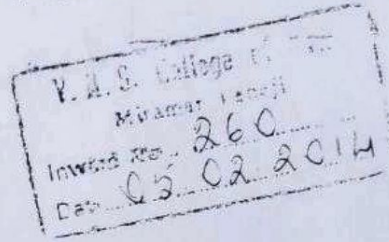 V. M. S. College of Law
Miramar Panaji
Inward No. 260
Date 05.02.2014